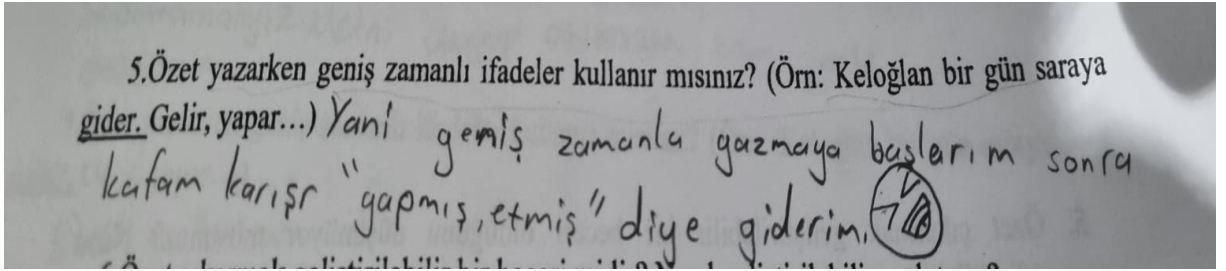 5.Özet yazarken geniş zamanlı ifadeler kullanır mısınız? (Örn: Keloğlan bir gün saraya
gider. Gelir, yapar...) Yani geniş zamanla yazmaya başlarım sonra
kafam karışr "yapmış, etmiş" diye giderim.